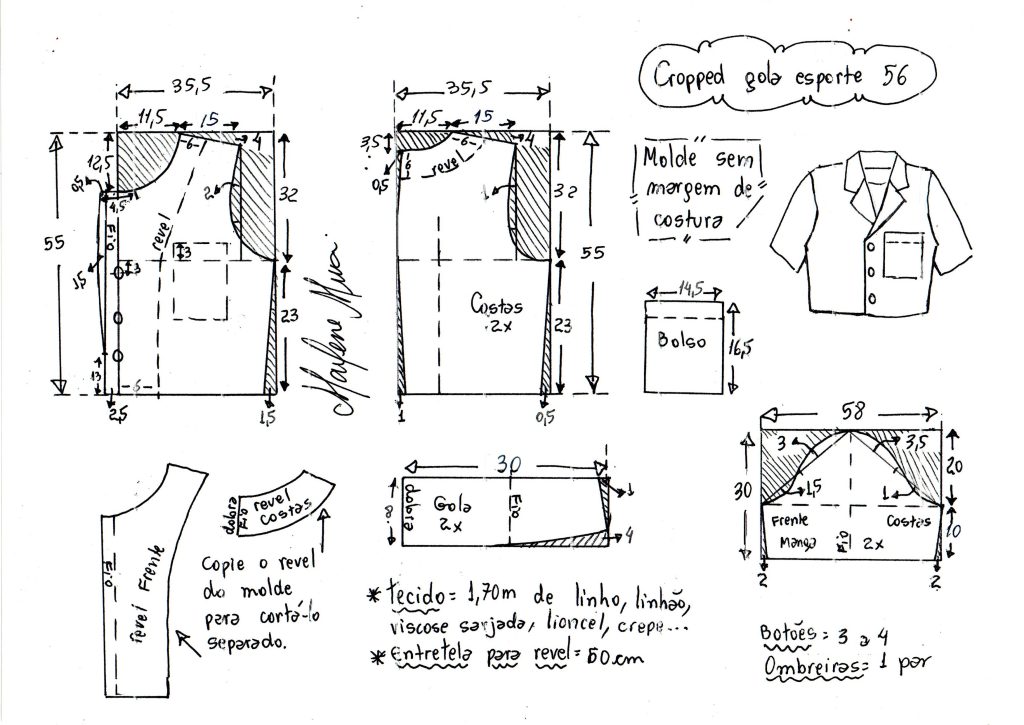 Cropped gola esporte 56
35,5
11,5
15
4
12,5
6
2
0,5
4,5
32
55
Fio
revel
3
3
15
23
13
6
2,5
1,5
Marlene Mua
35,5
11,5
15
4
3,5
6
6
revel
0,5
1
32
55
Costas
2x
23
1
0,5
Molde sem
margem de
costura
14,5
Bolso
16,5
58
3
3,5
30
20
1,5
1
Frente
Costas
Manga
Fio
2x
10
2
2
30
dobra
8
Gola
2x
Fio
1
4
Fio
revel Frente
dobra
Fio
revel
costas
Copie o revel
do molde
para cortá-lo
separado.
* Tecido = 1,70m de linho, linhão,
viscose sarjada, lioncel, crepe...
* Entretela para revel = 50cm
Botões = 3 a 4
Ombreiras = 1 par